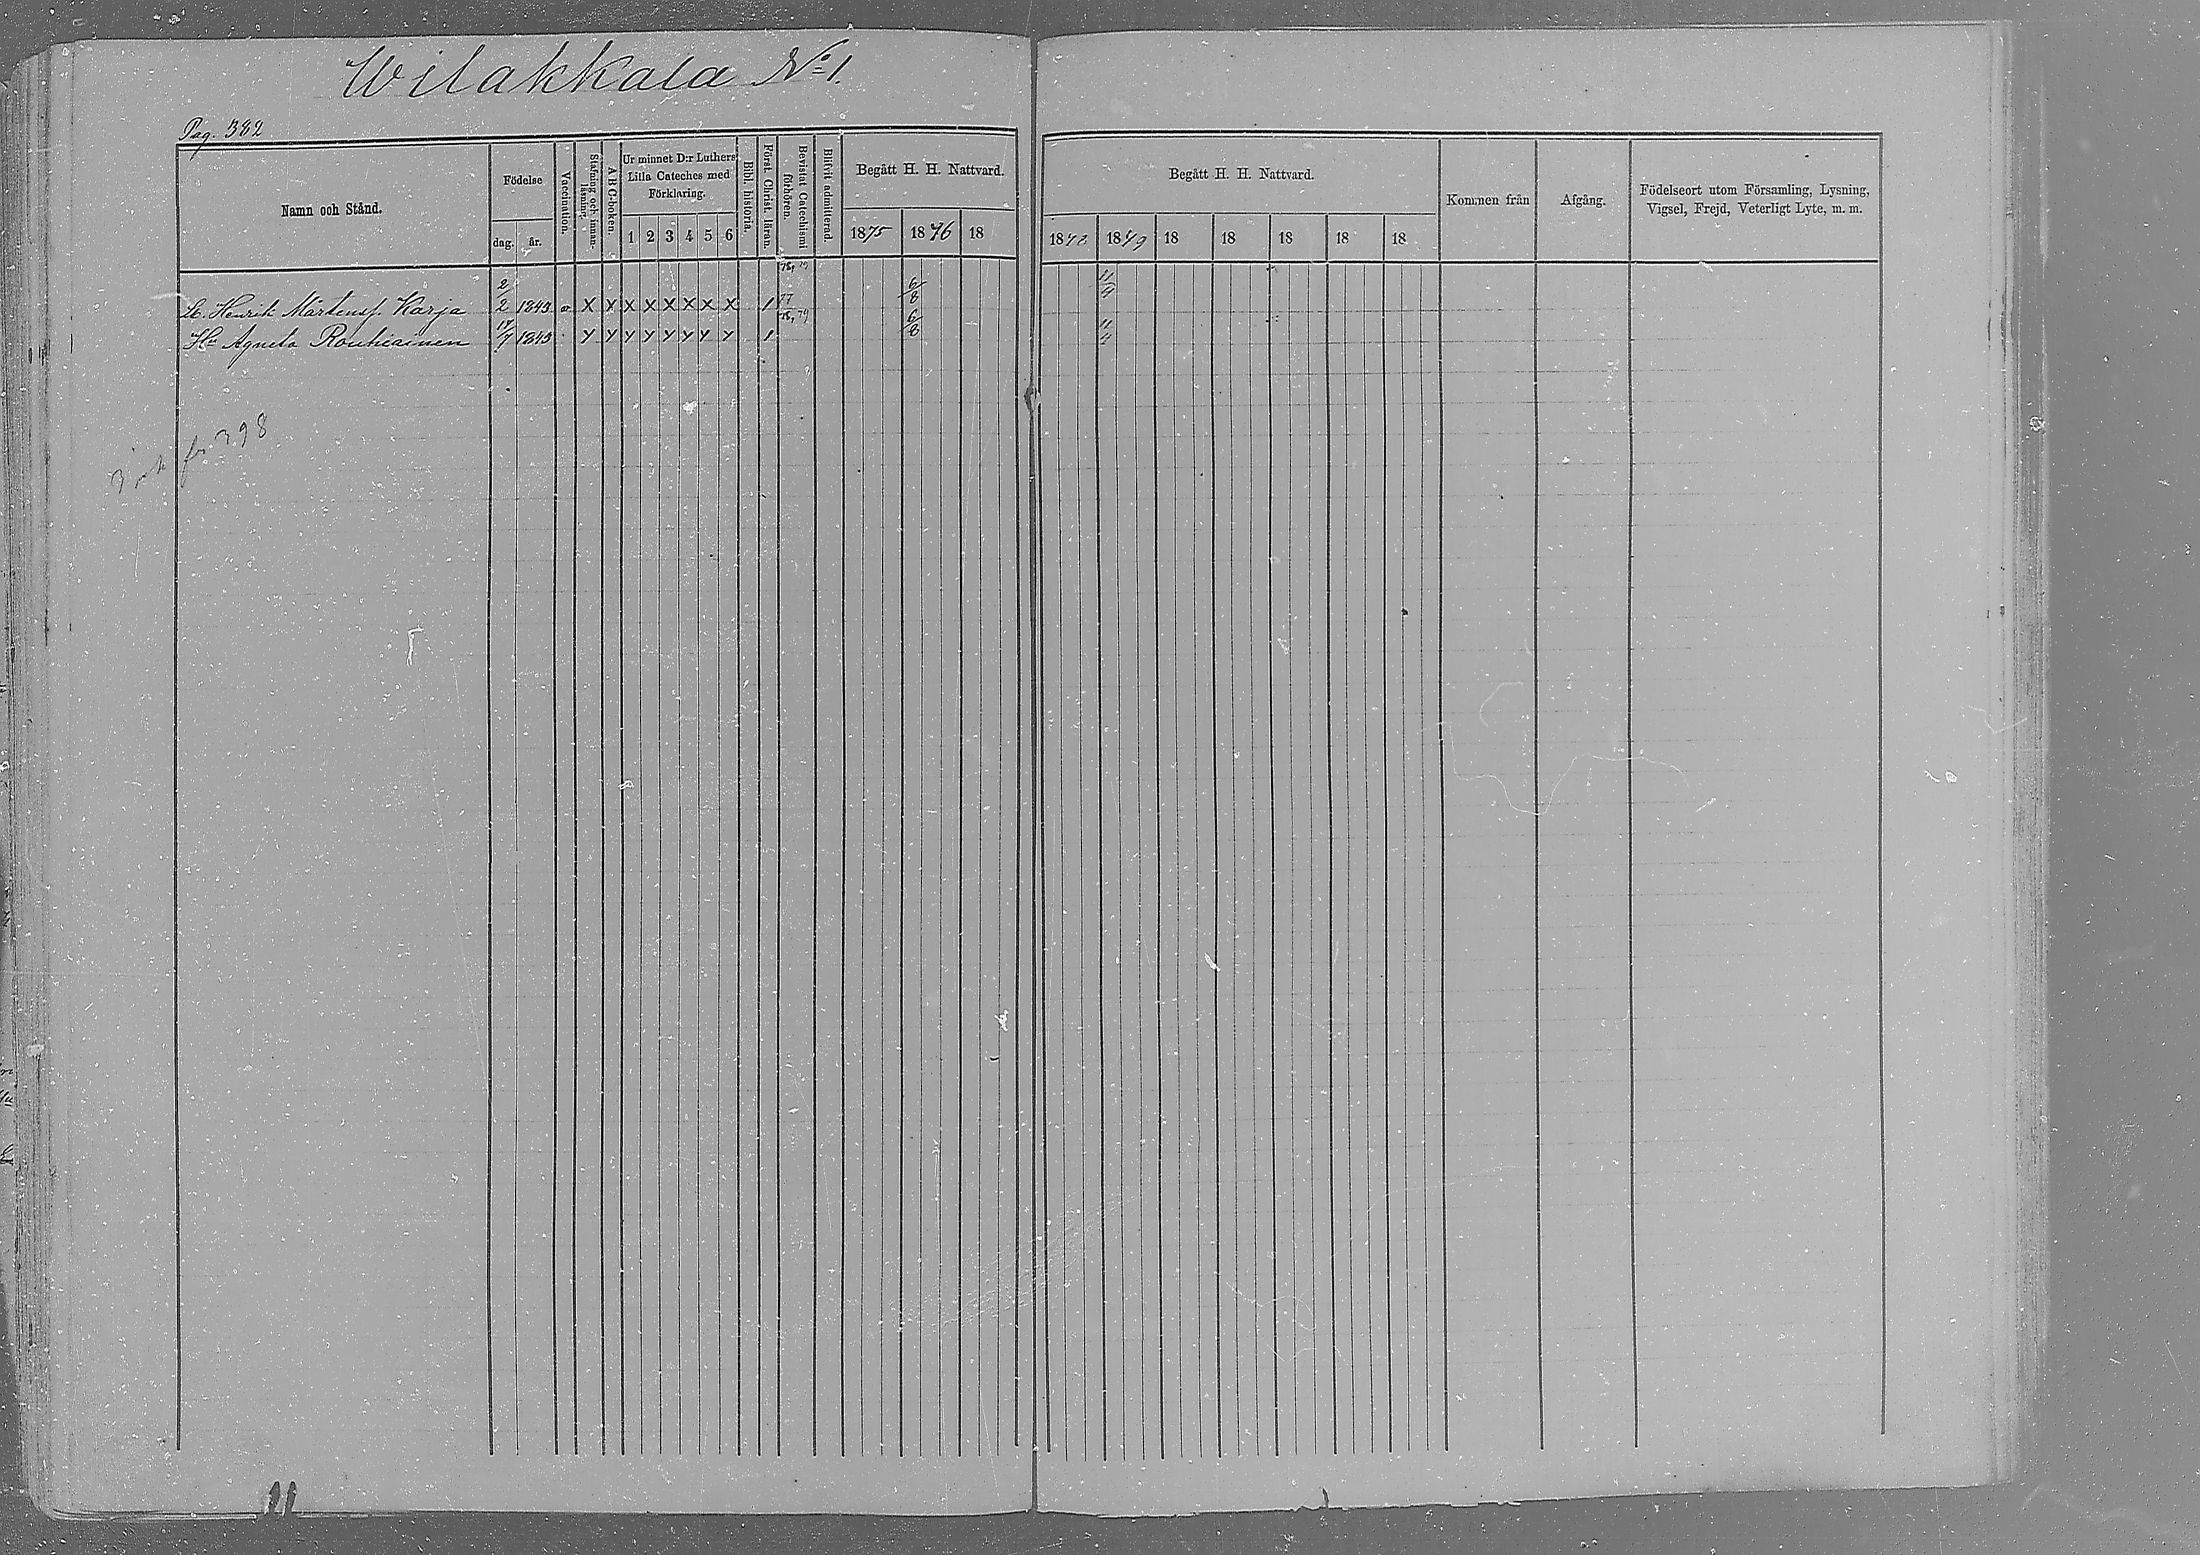 Wilakkala No 1.
Pag. 382
Namn och Stånd.
Födelse
dag. år.
Vaccination.
Stafning och innanläsning.
A B C-boken.
Ur minnet D:r Luthers Lilla Cateches med Förklaring.
1 2 3 4 5 6
Bibl. historia.
Först. Christ. läran.
Bevistat Catechismi förhören.
Blifvit admitterad.
Begått H. H. Nattvard.
1875 1876 18
Begått H. H. Nattvard.
1879 18 18 18 18 18
Kommen från
Afgång.
Födelseort utom Församling, Lysning, Vigsel, Frejd, Veterligt Lyte, m. m.
Henrik Mårtensf. Karja 2/2 1843 x x x x x x x x 1 77 78, 79 6/8 11/4
Hu Agneta Rouhiainen /7 1843 y y y y y y y y 1 78, 79 6/8 11/4
för 398